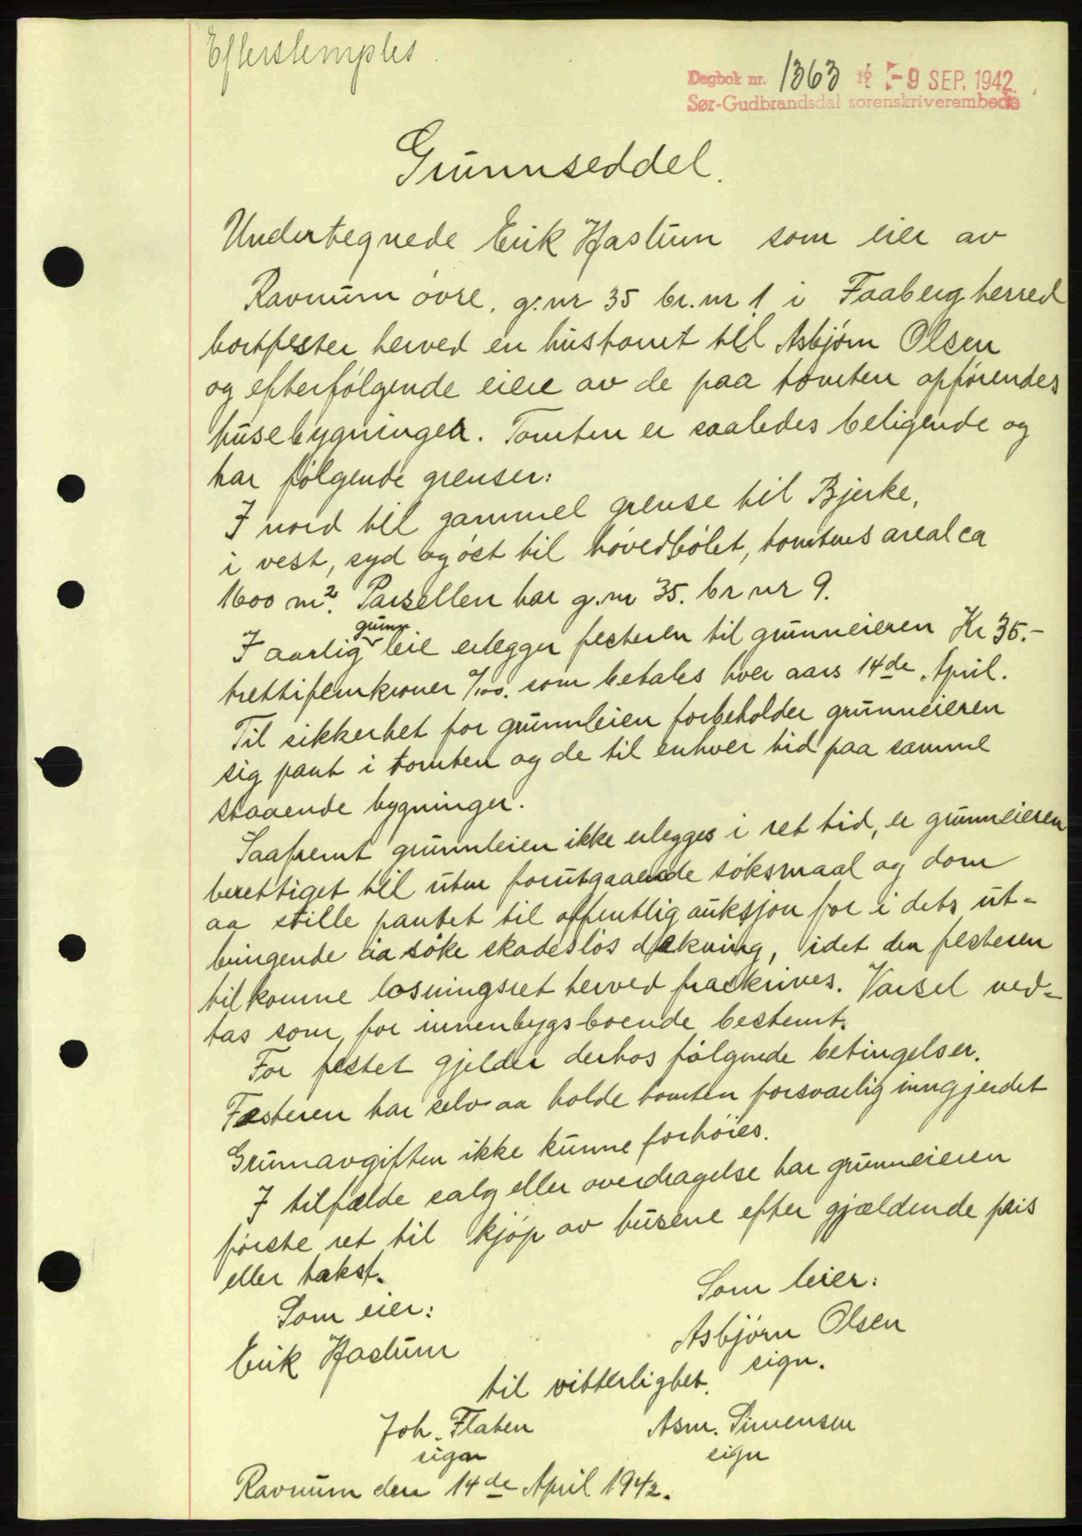 Efterstemples.
Dagbok nr. 1363 - 9 SEP. 1942
Sør-Gudbrandsdal sorenskriverembede
Grunnseddel.
Undertegnede Erik Hastum som eier av
Ravnum øvre, g.nr 35 br.nr 1 i Faaberg herred
bortfester herved en hustomt til Asbjørn Olsen
og efterfølgende eiere av de paa tomten opførendes
husebygninger. Tomten er saaledes beligende og
har følgende grenser:
I nord til gammel grense til Bjerke,
i vest, syd og øst til hovedbølet, tomtens areal ca
1600 m². Parsellen har g.nr 35. br nr 9.
I aarlig grunnleie erlegger festeren til grunneieren Kr 35.-
trettifemkroner 0/00. som betales hver aars 14de April.
Til sikkerhet for grunnleien forbeholder grunneieren
sig pant i tomten og de til enhver tid paa samme
staaende bygninger.
Saafremt grunnleien ikke erlegges i ret tid, er grunneieren
berettiget til uten forutgaaende søksmaal og dom
aa stille pantet til offentlig auksjon for i dets ut-
bringende aa søke skadesløs dekning, idet den festeren
tilkomne løsningsret herved fraskrives. Varsel ved-
tas som for innenbygsboende bestemt.
For festet gjelder derhos følgende betingelser.
Festeren har selv aa holde tomten forsvarlig inngjerdet
Grunnavgiften ikke kunne forhøies.
I tilfælde salg eller overdragelse har grunneieren
første ret til kjøp av husene efter gjældende pris
eller takst.
Som eier: Som leier:
Erik Hastum Asbjørn Olsen
sign.
til vitterlighet.
Joh. Flaten Asm. Simensen
sign sign
Ravnum den 14de April 1942.